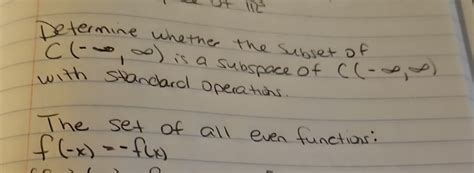 Determine whether the subset of
C(-∞, ∞) is a subspace of C(-∞,∞)
with standard operations.
The set of all even functions:
f(-x) = -f(x)